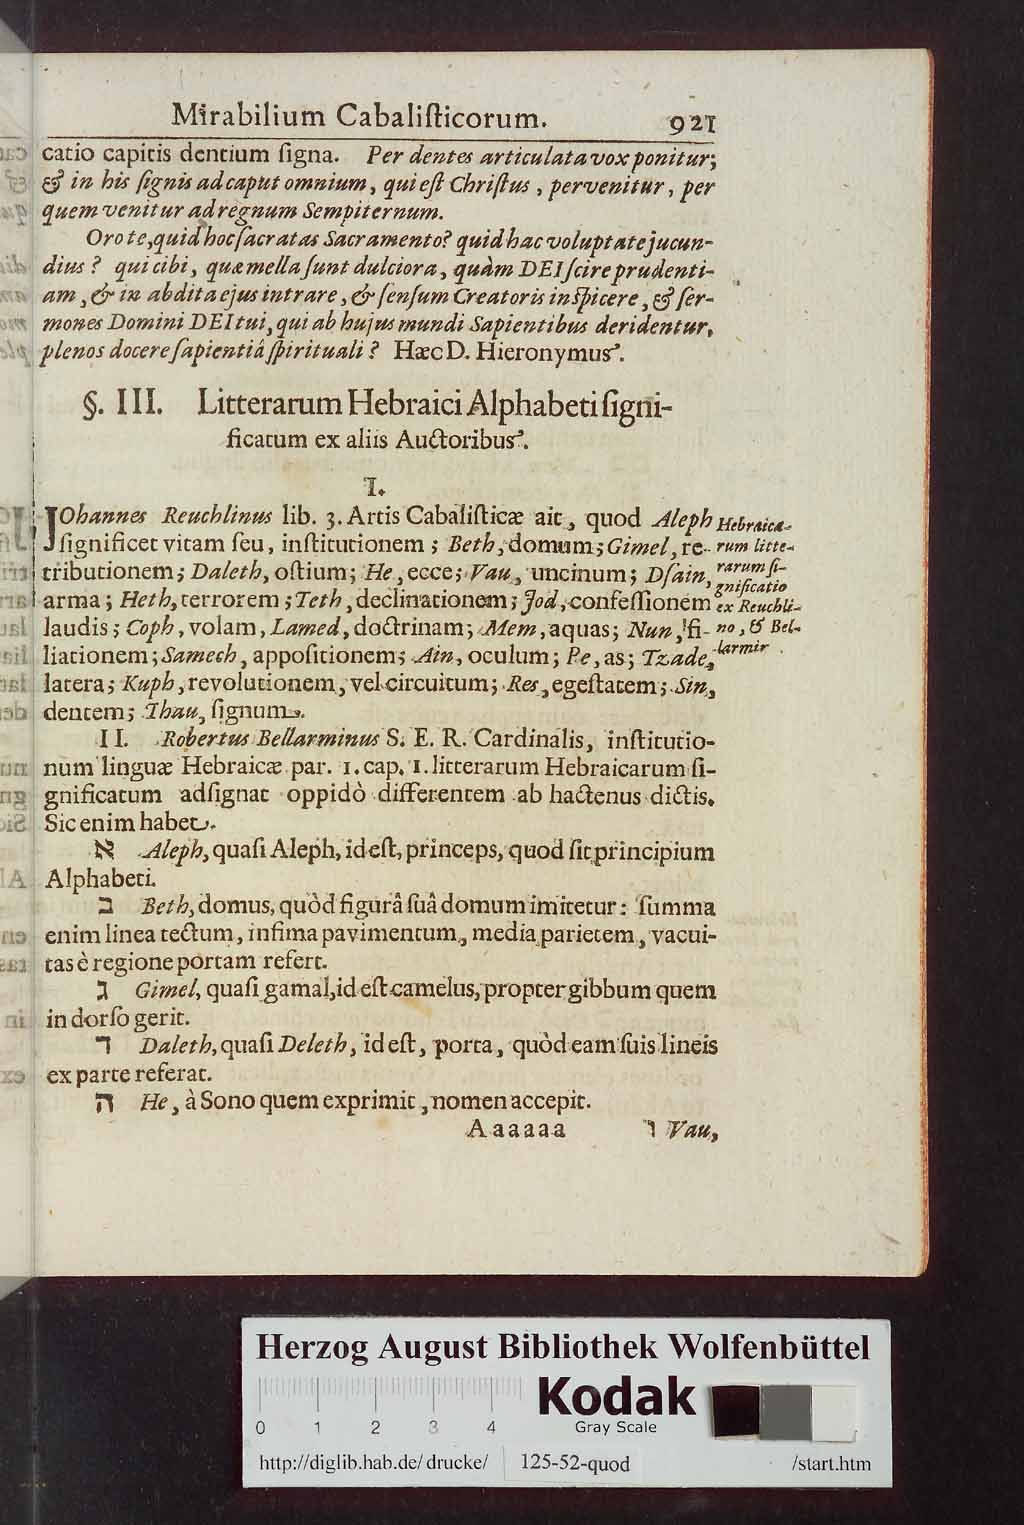 Mirabilium Cabaliſticorum. 921
catio capitis dentium ſigna. Per dentes articulata vox ponitur;
& in his ſignis ad caput omnium, qui eſt Chriſtus, pervenitur, per
quem venitur ad regnum Sempiternum.
Oro te, quid hoc ſacratas Sacramento? quid hac voluptate jucun-
dius? qui cibi, quæ mella ſunt dulciora, quàm DEI ſcire prudenti-
am, & in abdita ejus intrare, & ſenſum Creatoris inſpicere, & ſer-
mones Domini DEI tui, qui ab hujus mundi Sapientibus deridentur,
plenos docere ſapientiâ ſpirituali? Hæc D. Hieronymus.
§. III. Litterarum Hebraici Alphabeti ſigni-
ficatum ex aliis Auctoribus.
I.
JOhannes Reuchlinus lib. 3. Artis Cabaliſticæ ait, quod Aleph
ſignificet vitam ſeu, inſtitutionem; Beth, domum; Gimel, re-
tributionem; Daleth, oſtium; He, ecce; Vau, uncinum; Dſain,
arma; Heth, terrorem; Teth, declinationem; Jod, confeſſionem
laudis; Coph, volam, Lamed, doctrinam; Mem, aquas; Nun, fi-
liationem; Samech, appoſitionem; Ain, oculum; Pe, as; Tzade,
latera; Kuph, revolutionem, vel circuitum; Res, egeſtatem; Sin,
dentem; Thau, ſignum.
Hebraica-
rum litte-
rarum ſi-
gnificatio
ex Reuchli-
no, & Bel-
larmir
II. Robertus Bellarminus S. E. R. Cardinalis, inſtitutio-
num linguæ Hebraicæ par. 1. cap. 1. litterarum Hebraicarum ſi-
gnificatum adſignat oppidò differentem ab hactenus dictis.
Sic enim habet.
א Aleph, quaſi Aleph, id eſt, princeps, quod ſit principium
Alphabeti.
ב Beth, domus, quòd figurâ ſuâ domum imitetur: ſumma
enim linea tectum, infima pavimentum, media parietem, vacui-
tas è regione portam refert.
ג Gimel, quaſi gamal, id eſt camelus, propter gibbum quem
in dorſo gerit.
ד Daleth, quaſi Deleth, id eſt, porta, quòd eam ſuis lineis
ex parte referat.
ה He, à Sono quem exprimit, nomen accepit.
Aaaaaa ו Vau,
Herzog August Bibliothek Wolfenbüttel
0 1 2 3 4
Kodak
Gray Scale
http://diglib.hab.de/drucke/ 125-52-quod /start.htm